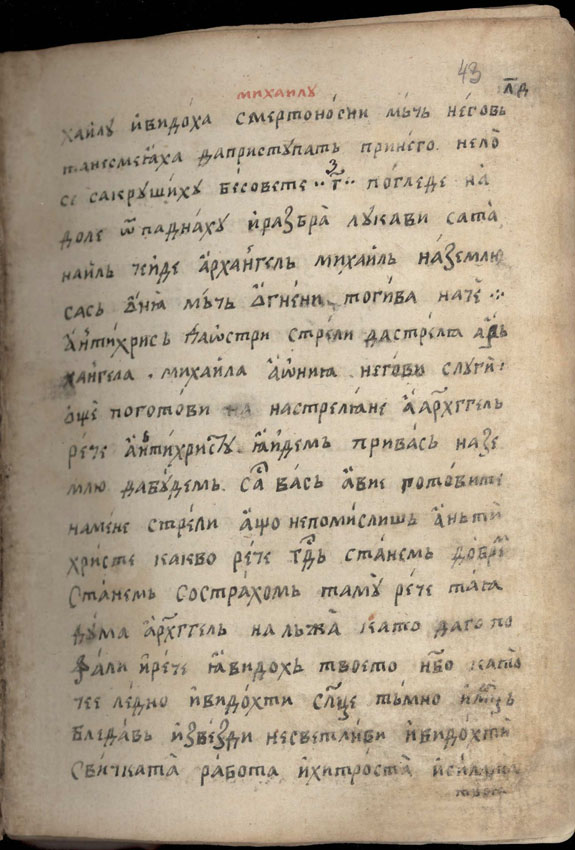 43
л҃д
михаилу
хаилу и҆видо́ха смертоно́сни мь́чь не́говь
танесмеꙗ́ха даприступать прине́го. нело̀
се сакруши́ху бѣсовете ·· г҃ ·· погледе на̀
доле ѿпадна́ху и҆разбра̀ лукави сата̀
наиль че́иде а҆рха́нгель михаиль на́землю
сась мь́чь ѻ҆гнени погива
а҆нтихрись стрели дастреля
ха́нгела . михаила а҆ѡнина него́ви слуги̑
о҆ще погото́ви на настреляне а҆архг҃гель
ре́че а҆нтихристꙋ ꙗ҆и́демь прива́сь назе
млю дабу́демь. ва́сь а҆вие готовите
намене стре́ли а҆що непоми́слишь а҆ньти
христе какво ре́че ста́немь добре
Ста́немь состра́хомь таму̀ ре́че тага
дума а҆рхг҃гель нальжа̀ като даго по
фали и҆ре́че ꙗ҆видохь твоето н҃бо като̀
че́е ле́дно и҆видо́хти сл҃нце тьмно
бледа́вь и҆зве́зди несветли́ви и҆видо́хти
Сви́чката̀ ра́бота и҆хитро́ста̀